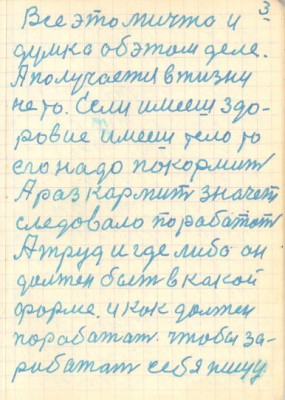 3
Все это мичта и
думка об этом деле.
А получаетя в тизни
не то. Если имееш здо-
ровие имееш тело то
его надо покормит
А раз кармит значет
следовало поработат
А труд и где либо он
должен быт в какой
форме. и как должен
поработат. чтобы за-
работат себя пищу